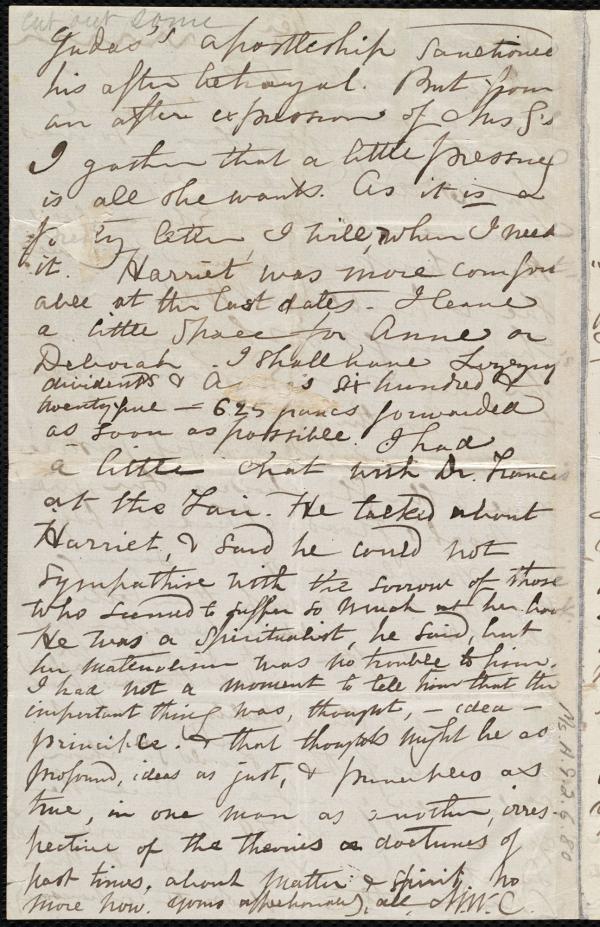 cut out some
Judas's apostleship sanctioned
his after betrayal. But from
an after expression of Mrs G's
I gather that a little pressing
is all she wants. As it is a
letter, I will, when I need
it. Harriet was more comfort
able at the last dates. I leave
a little space for Anne or
Deborah. I shall have
dividends & six hundred &
twenty five — 625 francs forwarded
as soon as possible. I had
a little chat with Dr. Francis
at the Fair. He talked about
Harriet, & said he could not
sympathise with the sorrow of those
who seemed to suffer so much at her book
He was a Spiritualist, he said, but
her materialism was no trouble to him.
I had not a moment to tell him that the
important thing was, thought, — idea —
principle. & that thoughts might be as
profound, ideas as just, & principles as
true, in one man as another, irres
pective of the theories or doctrines of
past times, about matter & spirit, no
more now. Yours affectionately, all, M.W.C.
Ms. A.9.2.6.80